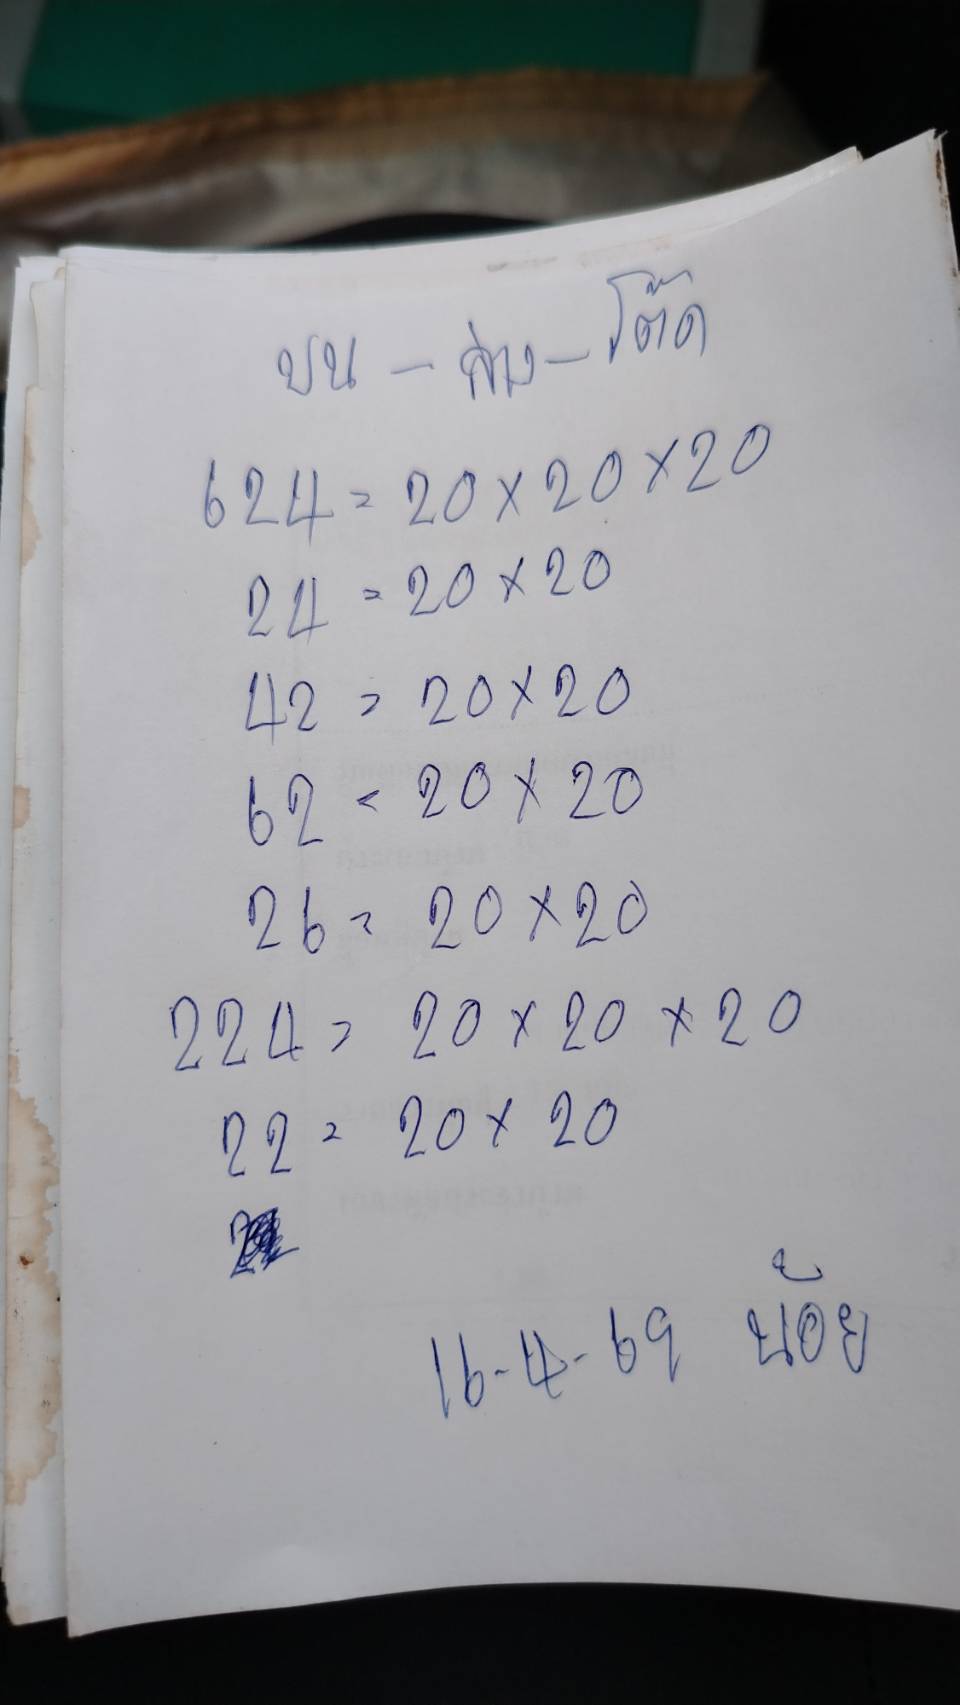 บน - ล่าง - โต๊ด
624 = 20 x 20 x 20
24 = 20 x 20
42 = 20 x 20
62 = 20 x 20
26 = 20 x 20
224 = 20 x 20 x 20
22 = 20 x 20
16-4-69 น้อย